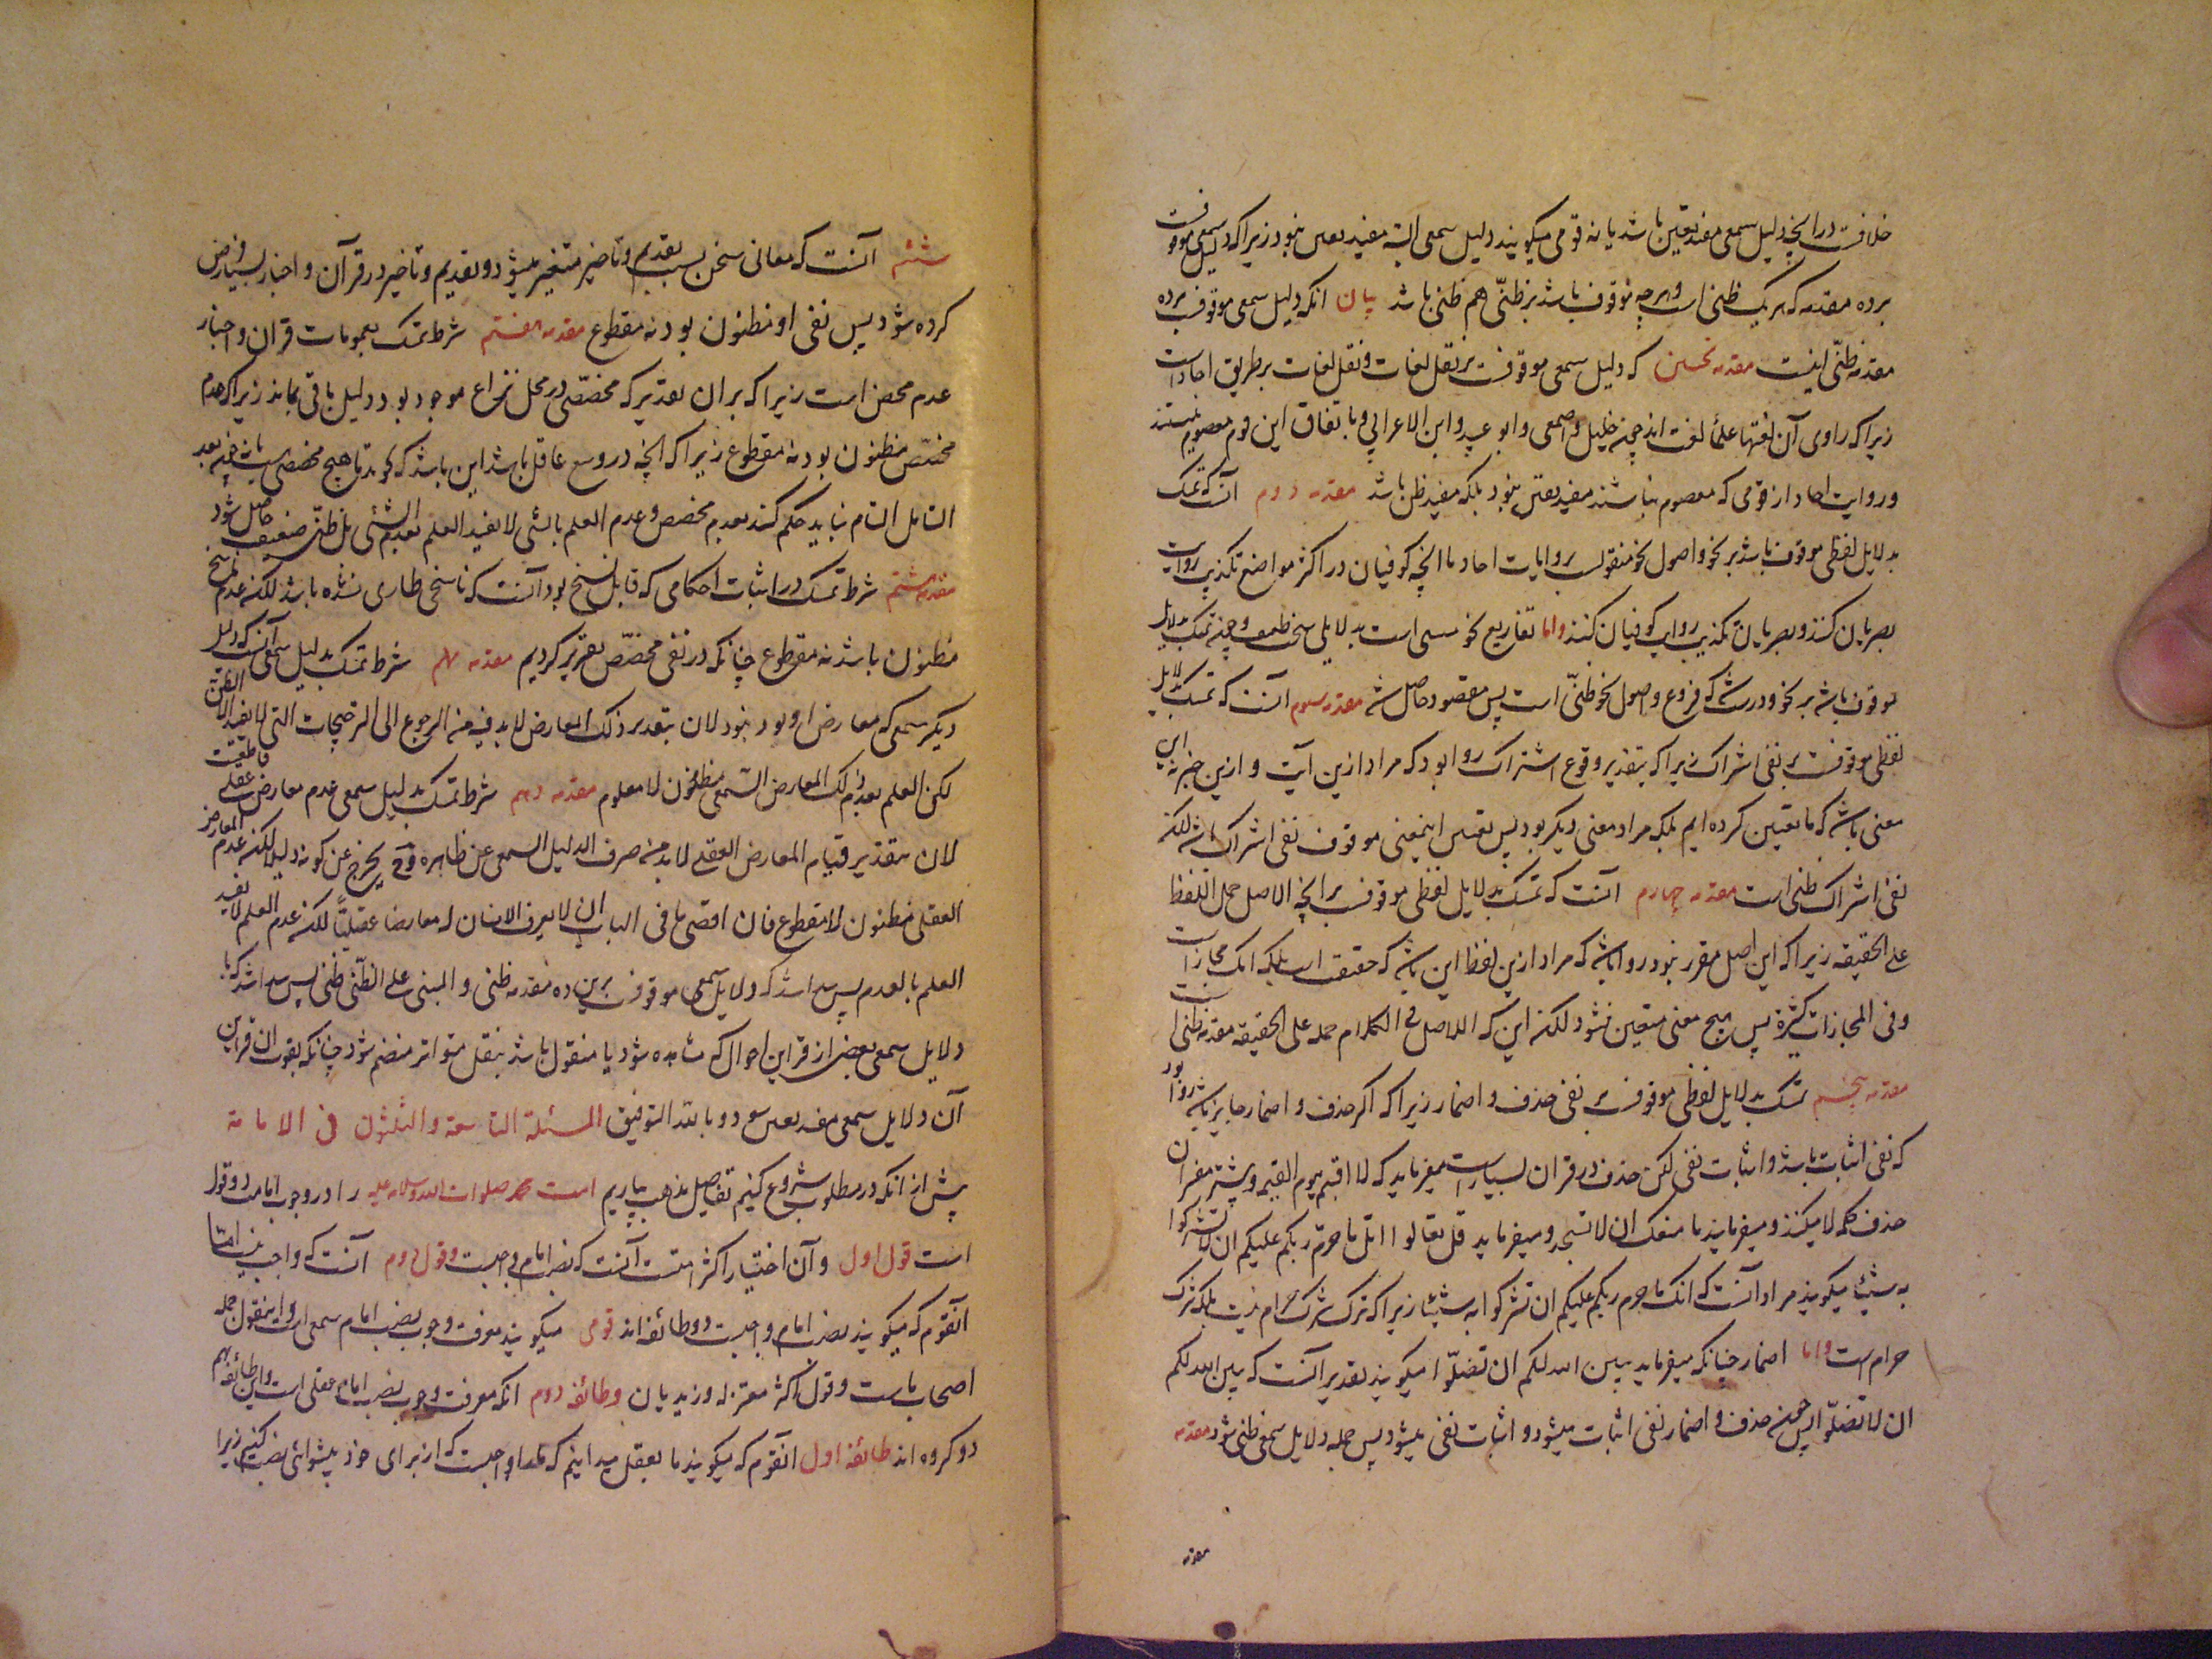 خلافست در آنچه دلیل سمعی مفید یقین باشد یا نه قومی میکویند دلیل سمعی البته مفید یقین نبود زیرا که دلیل سمعی موقوفست
بر ده مقدمه که هر یک ظنی است و هرچه موقوف باشد بر ظنّی هم ظنی باشد بیان انکه دلیل سمعی موقوف بر ده
مقدمه ظنّی اینست مقدمه نخستین که دلیل سمعی موقوفست بر نقل لغات و نقل لغات بر طریق احاد است
زیرا که راوی آن لغتها علمأ لغت اند چون خلیل و اصمعی و ابو عبید و ابن الاعرابی و باتفاق این قوم معصوم نیستند
و روایت احاد از قومی که معصوم نباشند مفید یقین نبود بلکه مفید ظن باشد مقدمه دوم آنست که تمسک
بدلایل لفظی موقوف باشد بر نحو و اصول نحو منقولست بروایات احاد با انچه کوفیان در اکثر مواضع تکذیب روایت
بصریان کنند و بصریان تکذیب روایت کوفیان کنند واما تفاریع نحو مبنی است بدلایلی سخت ضعیف و چون تمسک بدلایل
موقوف باشد بر نحو و درست شد که فروع و اصول نحو ظنّی است پس مقصود حاصل شد مقدمه سوم آنست که تمسک بدلایل
لفظی موقوفست بر نفی اشتراک زیرا که بتقدیر وقوع اشتراک روا بود که مراد ازین آیت و ازین خبر نه این
معنی باشد که ما تعیین کرده ایم بلکه مراد معنی دیکر بود پس تعیین اینمعنی موقوف نفی اشتراک باشد لکنه
نفی اشتراک ظنی است مقدمه چهارم آنست که تمسک بدلایل لفظی موقوفست بر انچه الاصل حمل اللفظ
علی الحقیقه زیرا که این اصل مقرر نبود روا باشد که مراد ازین لفظ این باشد که حقیقت است بلکه انک مجاز است
وفی المجازات کثرة پس هیچ معنی متعین نشود لکنه این که الاصل فی الکلام حمله علی الحقیقه مقدمه ظنی است
مقدمه پنجم تمسک بدلایل لفظی موقوفست بر نفی حذف و اضمار زیرا که اکر حذف و اضمار جایز باشد روا بود
که نفی اثبات باشد و اثبات نفی لکن حذف در قران بسیار است میفرماید که لا اقسم بیوم القیمه و بیشتر مفسران
حذف کلمه لا میکنند و میفرماید ما منعک ان لا تسجد و میفرماید قل تعالوا اتل ما حرم ربکم علیکم ان لا تشرکوا
به شیئا میکویند مراد آنست که انک ما حرم ربکم علیکم ان تشرکوا به شیئا زیرا که ترک شرک حرام نیست بلکه شرک
حرام است و اما اضمار چنانکه میفرماید یبین الله لکم ان تضلّوا میکویند تقدیر آنست که یبین الله لکم
ان لا تضلّوا پس چون حذف و اضمار نفی اثبات میشود و اثبات نفی میشود پس جمله دلایل سمعی ظنی شود مقدمه
مقدمه
ششم آنست که معانی سخن بسبب تقدیم و تاخیر متغیر میشود و تقدیم و تاخیر در قرآن و اخبار بسیار فرض
کرده شود پس نفی او مظنون بود نه مقطوع مقدمه هفتم شرط تمسک بعمومات قران و اخبار
عدم مخصّص است زیرا که بران تقدیر که مخصّصی در محل نزاع موجود بود دلیل باقی نماند زیرا که عدم
مخصّص مظنون بود نه مقطوع زیرا که انچه در وسع عاقل باشد این باشد که کوید تا هیچ مخصص یافته نشد بعد
التامل التام نباید حکم کند بعدم مخصص و عدم العلم بالشی لا یفید العلم بعدم الشئ بل ظنّی ضعیف حاصل شود
مقدمه هشتم شرط تمسک در اثبات احکامی که قابل نسخ بود آنست که ناسخی طاری نشده باشد لکنه عدم ناسخ
مظنون باشد نه مقطوع چنانکه در نفی مخصّص تقریر کردیم مقدمه نهم شرط تمسک بدلیل سمعی آنست که دلیل
دیکر سمعی که معارض او بود نبود لان بتقدیر ذلک المعارض لا بد فیه من الرجوع الی الترجیحات التی لا یفید الا الظن
لکن العلم بعدم ذلک المعارض السّمعی مظنون لا معلوم مقدمه دهم شرط تمسک بدلیل سمعی عدم معارض عقلی قاطعیست
لان بتقدیر قیام المعارض العقلی لا بد من صرف الدلیل السمعی عن ظاهره وح یخرج عن کونه دلیلا لکنه عدم المعارض
العقلی مظنون لا مقطوع فان اقصی ما فی الباب ان لا یعرف الانسان له معارضا عقلیّا لکنه عدم العلم لا یفید
العلم بالعدم پس پیدا شد که دلایل سمعی موقوفست برین ده مقدمه ظنی و المبنی علی الظنّی ظنی پس پیدا شد که با
دلایل سمعی بعضی از قراین احوال که مشاهده شود یا منقول باشد بنقل متواتر منضم شود چنانکه بقوت ان قراین
آن دلایل سمعی مفید یقین شود و بالله التوفیق المسئلة التاسعة والثلثون فی الامامة
پیش از انکه در مطلوب شروع کنیم تفاصیل مذهب بیاریم امت محمد صلوات الله وسلامه علیه را در وجوب امامت دو قول
است قول اول و آن اختیار اکثر امتست آنست که نصب امام واجبست و قول دوم آنست که واجب نیست اما
آنقوم که میکویند نصب امام واجبست دو طائفه اند قومی میکویند معرفت وجوب نصب امام سمعی است و اینقول جمله
اصحاب ماست و قول اکثر معتزله و زیدیان وطائفه دوم انکه معرفت وجوب نصب امام عقلی است و این طائفه هم
دو کروه اند طائفه اول انقوم که میکویند ما بعقل میدانیم که بر ما واجبست که از برای خود پیشوائی نصب کنیم زیرا